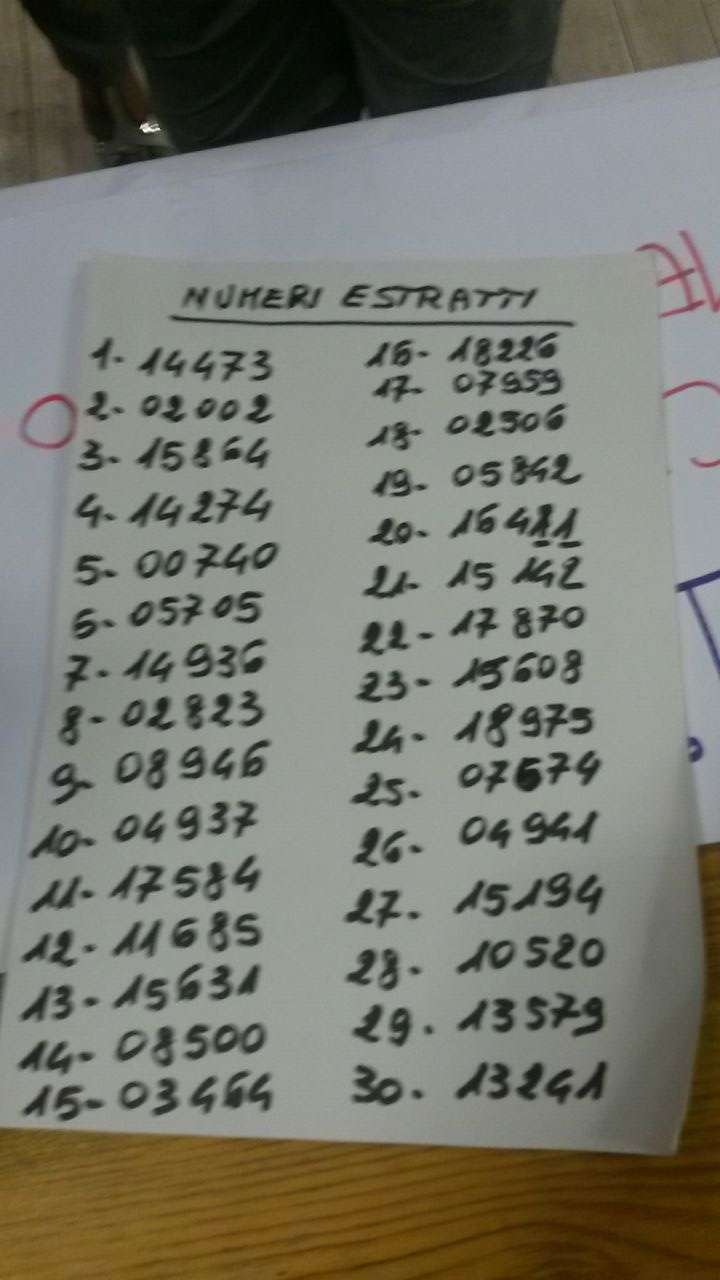 NUMERI ESTRATTI
1- 14473
2- 02002
3- 15864
4- 14274
5- 00740
6- 05705
7- 14936
8- 02823
9- 08946
10- 04937
11- 17584
12- 11685
13- 15631
14- 08500
15- 03464
16- 18226
17- 07959
18- 02506
19- 05842
20- 16481
21- 15142
22- 17870
23- 15608
24- 18975
25- 07674
26- 04941
27. 15194
28. 10520
29. 13579
30. 13241